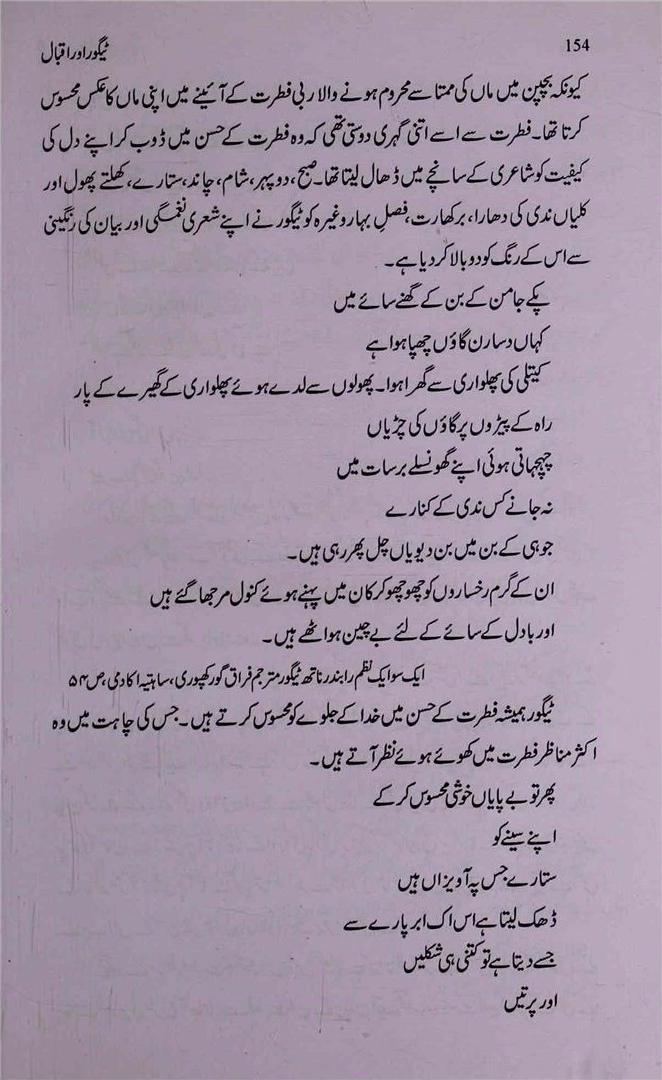 154
ٹیگور اور اقبال
کیونکہ بچپن میں ماں کی ممتا سے محروم ہونے والا ربی فطرت کے آئینے میں اپنی ماں کا عکس محسوس
کرتا تھا۔ فطرت سے اسے اتنی گہری دوستی تھی کہ وہ فطرت کے حسن میں ڈوب کر اپنے دل کی
کیفیت کو شاعری کے سانچے میں ڈھال لیتا تھا۔ صبح، دوپہر، شام، چاند، ستارے، کھلتے پھول اور
کلیاں ندی کی دھارا، برکھارت، فصلِ بہار وغیرہ کو ٹیگور نے اپنے شعری نغمگی اور بیان کی رنگینی
سے اس کے رنگ کو دوبالا کر دیا ہے۔
پکے جامن کے بن کے گھنے سائے میں
کہاں دسارن گاؤں چھپا ہوا ہے
کیتلی کی پھلواری سے گھرا ہوا۔ پھولوں سے لدے ہوئے پھلواری کے گھیرے کے پار
راہ کے پیڑوں پر گاؤں کی چڑیاں
چہچہاتی ہوئی اپنے گھونسلے برسات میں
نہ جانے کس ندی کے کنارے
جوہی کے بن میں بن دیویاں چل پھر رہی ہیں۔
ان کے گرم رخساروں کو چھو چھو کر کان میں پہنے ہوئے کنول مرجھا گئے ہیں
اور بادل کے سائے کے لئے بے چین ہو اٹھے ہیں۔
ایک سو ایک نظم رابندر ناتھ ٹیگور مترجم فراق گورکھپوری، ساہتیہ اکادمی، ص ۵۴
ٹیگور ہمیشہ فطرت کے حسن میں خدا کے جلوے کو محسوس کرتے ہیں۔ جس کی چاہت میں وہ
اکثر مناظر فطرت میں کھوئے ہوئے نظر آتے ہیں۔
پھر تو بے پایاں خوشی محسوس کر کے
اپنے سینے کو
ستارے جس پہ آویزاں ہیں
ڈھک لیتا ہے اس اک ابر پارے سے
جسے دیتا ہے تو کتنی ہی شکلیں
اور پرتیں